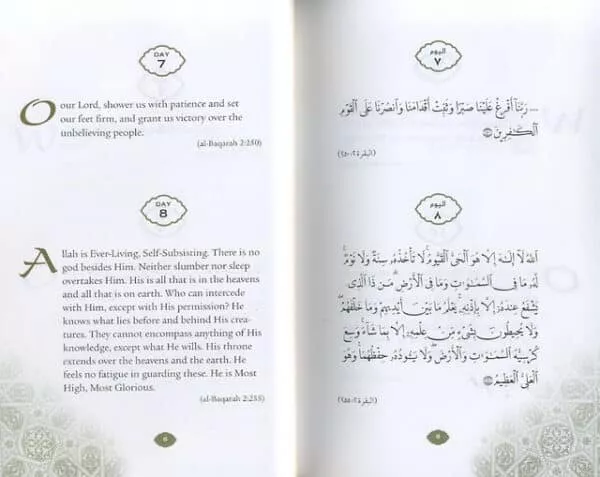 DAY
7
Our Lord, shower us with patience and set
our feet firm, and grant us victory over the
unbelieving people.
(al-Baqarah 2:250)
DAY
8
Allah is Ever-Living, Self-Subsisting. There is no
god besides Him. Neither slumber nor sleep
overtakes Him. His is all that is in the heavens
and all that is on earth. Who can intercede
with Him, except with His permission? He
knows what lies before and behind His crea-
tures. They cannot encompass anything of His
knowledge, except what He wills. His throne
extends over the heavens and the earth. He
feels no fatigue in guarding these. He is Most
High, Most Glorious.
(al-Baqarah 2:255)
اليوم
٧
... رَبَّنَآ أَفْرِغْ عَلَيْنَا صَبْرًا وَثَبِّتْ أَقْدَامَنَا وَٱنصُرْنَا عَلَى ٱلْقَوْمِ
ٱلْكَٰفِرِينَ
(البقرة ٢: ٢٥٠)
اليوم
٨
ٱللَّهُ لَآ إِلَٰهَ إِلَّا هُوَ ٱلْحَىُّ ٱلْقَيُّومُ ۚ لَا تَأْخُذُهُۥ سِنَةٌ وَلَا نَوْمٌ ۚ
لَّهُۥ مَا فِى ٱلسَّمَٰوَٰتِ وَمَا فِى ٱلْأَرْضِ ۗ مَن ذَا ٱلَّذِى
يَشْفَعُ عِندَهُۥٓ إِلَّا بِإِذْنِهِۦ ۚ يَعْلَمُ مَا بَيْنَ أَيْدِيهِمْ وَمَا خَلْفَهُمْ ۖ
وَلَا يُحِيطُونَ بِشَىْءٍ مِّنْ عِلْمِهِۦٓ إِلَّا بِمَا شَآءَ ۚ وَسِعَ
كُرْسِيُّهُ ٱلسَّمَٰوَٰتِ وَٱلْأَرْضَ ۖ وَلَا يَـُٔودُهُۥ حِفْظُهُمَا ۚ وَهُوَ
ٱلْعَلِىُّ ٱلْعَظِيمُ
(البقرة ٢: ٢٥٥)